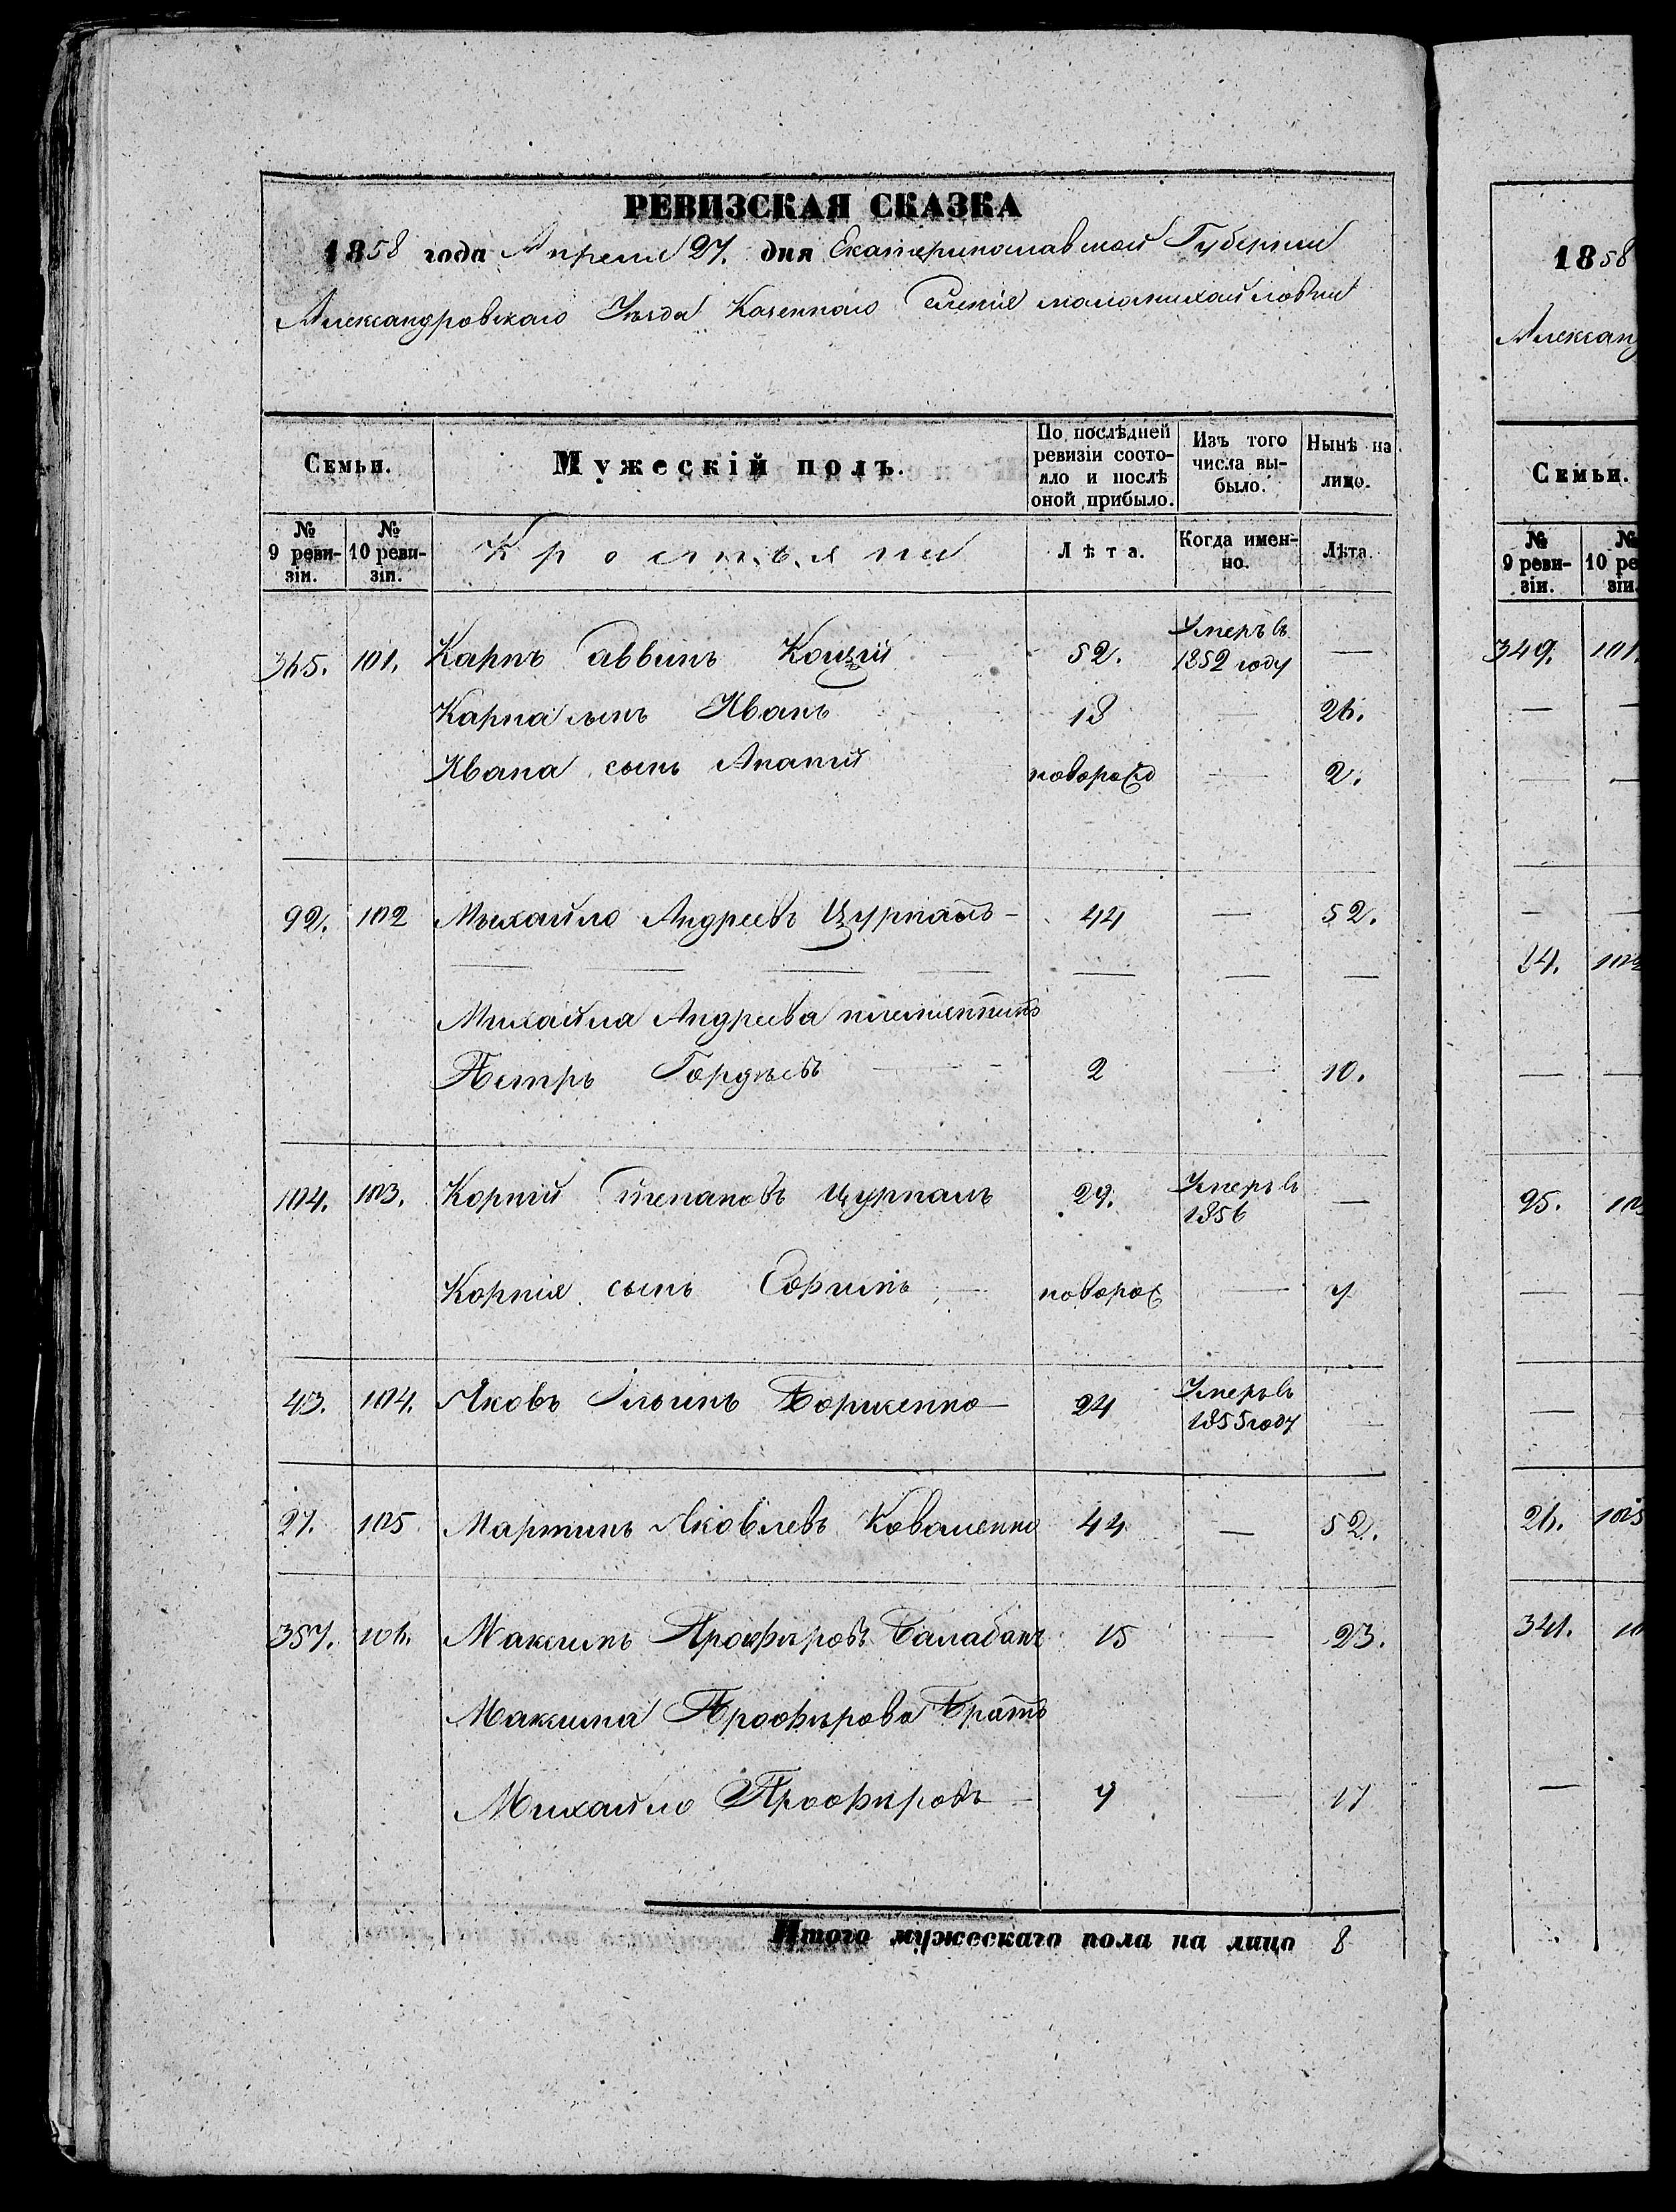 РЕВИЗСКАЯ СКАЗКА
1858 года Апреля 27. дня Екатеринославской Губернии
Александровского Уѣзда Казенного Селенія маломихайловки
Семьи. Мужескій полъ. По послѣдней ревизіи состояло и послѣ оной прибыло. Изъ того числа выбыло. Нынѣ на лицо.
№ 9 ревизіи. № 10 ревизіи. Крестьяни Лѣта. Когда именно. Лѣта.
365. 101. Карпъ Саввинъ 52. Умеръ въ 1852 году —
Карпа сынъ Иванъ 18 — 26.
Ивана сынъ Ананій новорожд — 2.
92. 102 Михайло Андреевъ Цурпалъ — 44 — 52.
— — — — — — —
Михайла Андреева племянникъ
Петръ Гордѣевъ — 2 — 10.
104. 103. Корній Степановъ Цурпалъ 29. Умеръ въ 1856 —
Корнія сынъ Ефимъ — новорож — 7
43. 104. Яковъ Ильинъ 24 Умеръ въ 1855 году —
27. 105 Мартинъ Яковлевъ Коваленко 44 — 52.
357. 106. Максимъ Профировъ Балабанъ 15 — 23.
Максима Профирова Братъ
Михайло Профировъ — 9 — 17
Итого мужескаго пола на лицо 8
1858
Александ
Семьи.
№ 9 ревизіи. № 10 ре зіи.
349. 101.
— —
— —
— —
24. 102
— —
25. 103
— —
— —
26. 105
341. 10
—